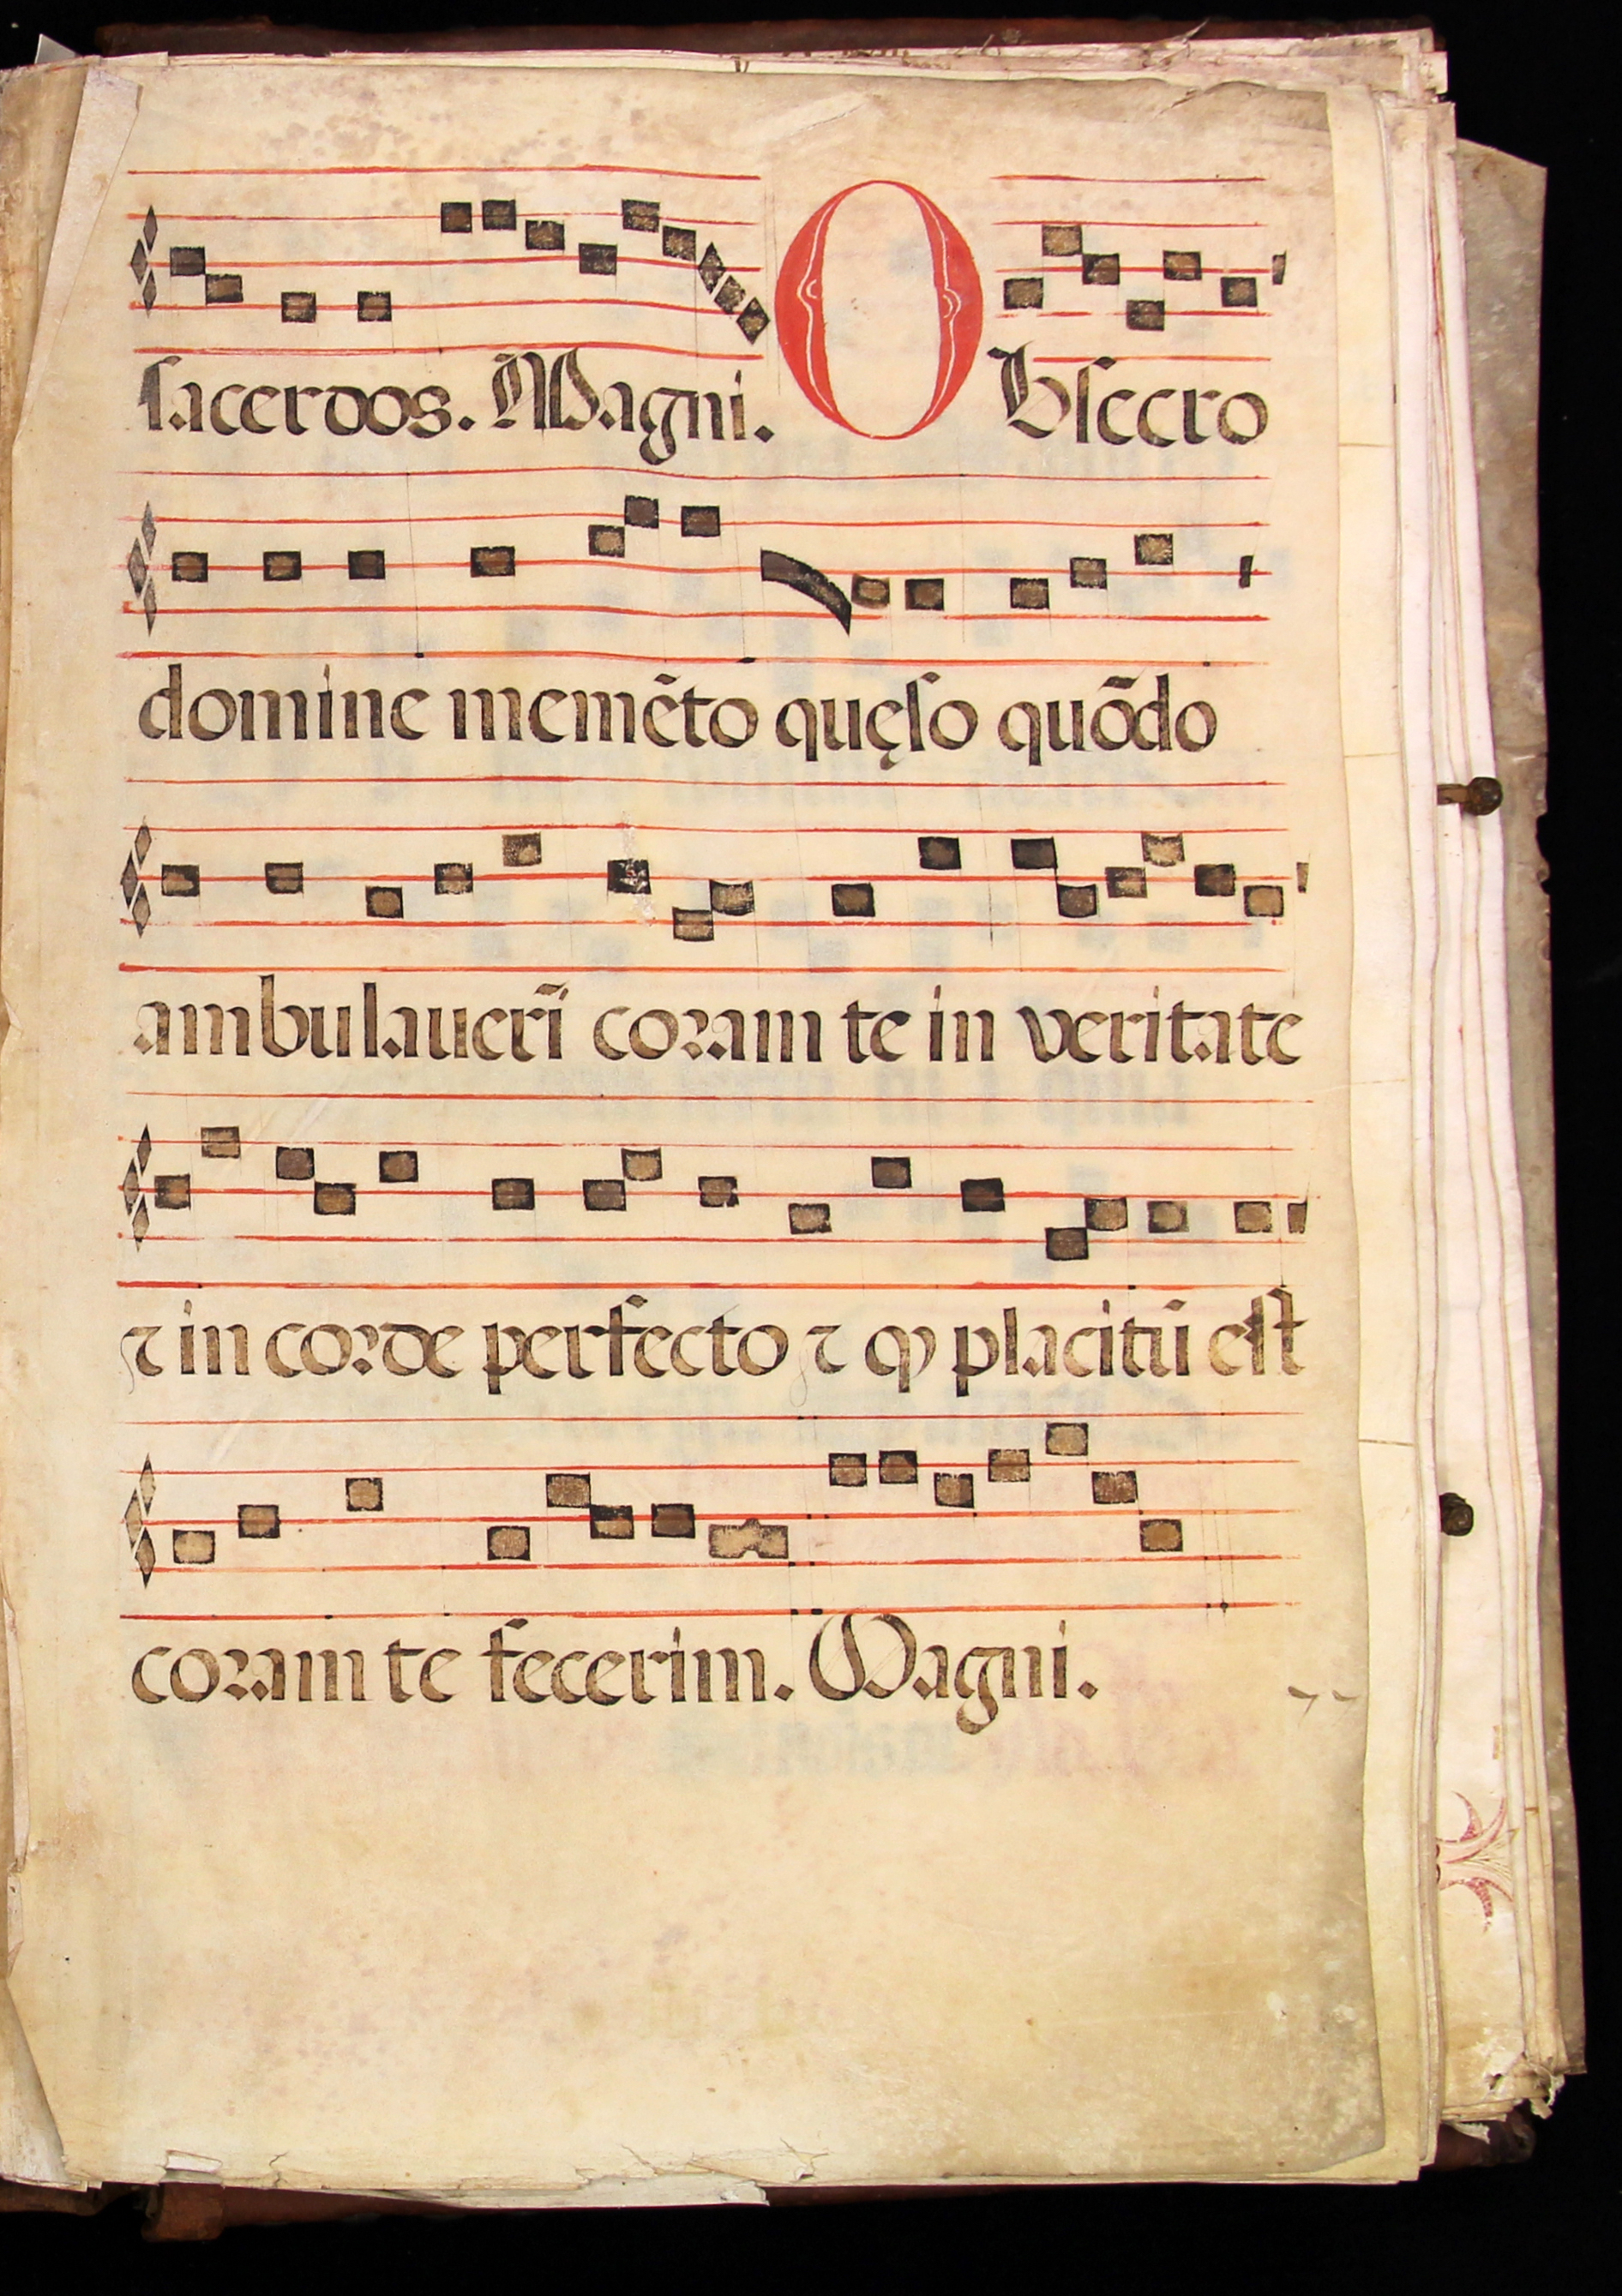 sacerdos. Magni. Obsecro
domine memēto quęso quōdo
ambulauerī coram te in veritate
⁊ in corde perfecto ⁊ ꝙ placitū est
coram te fecerim. Magni.